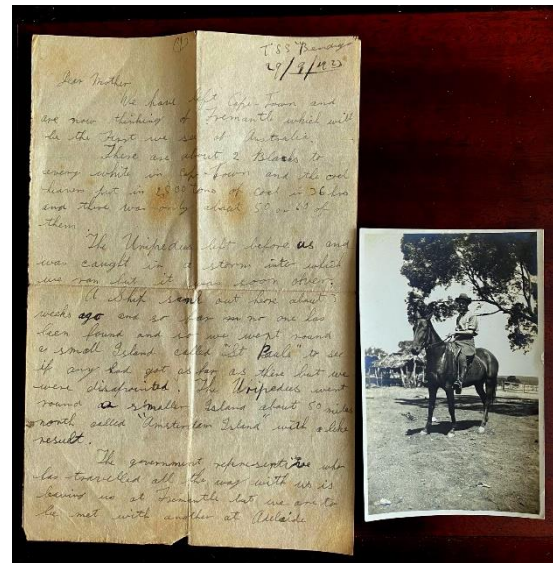 (1)
T.S.S "Bendigo"
29/9/1923
Dear Mother
We have left Cape-Town and
are now thinking of Fremantle which will
be the First we see of Australia.
There are about 2 Blacks to
every white in Cape-Town and the coal
heavers put in 2800 tons of coal in 36 hrs
and there was only about 50 or 60 of
them.
The Unipedeus left before us and
was caught in a storm into which
we ran but it was soon over.
A Ship sank out here about 3
weeks ago and so far no one has
been found and so we went round
a small Island called "St Pauls" to see
if any had got as far as there but we
were disapointed. The Unipedeus went
round a smaller Island about 50 miles
north called "Amsterdam Island" with a like
result.
The government representitive who
has travelled all the way with us is
leaving us at Fremantle but we are to
be met with another at Adelaide